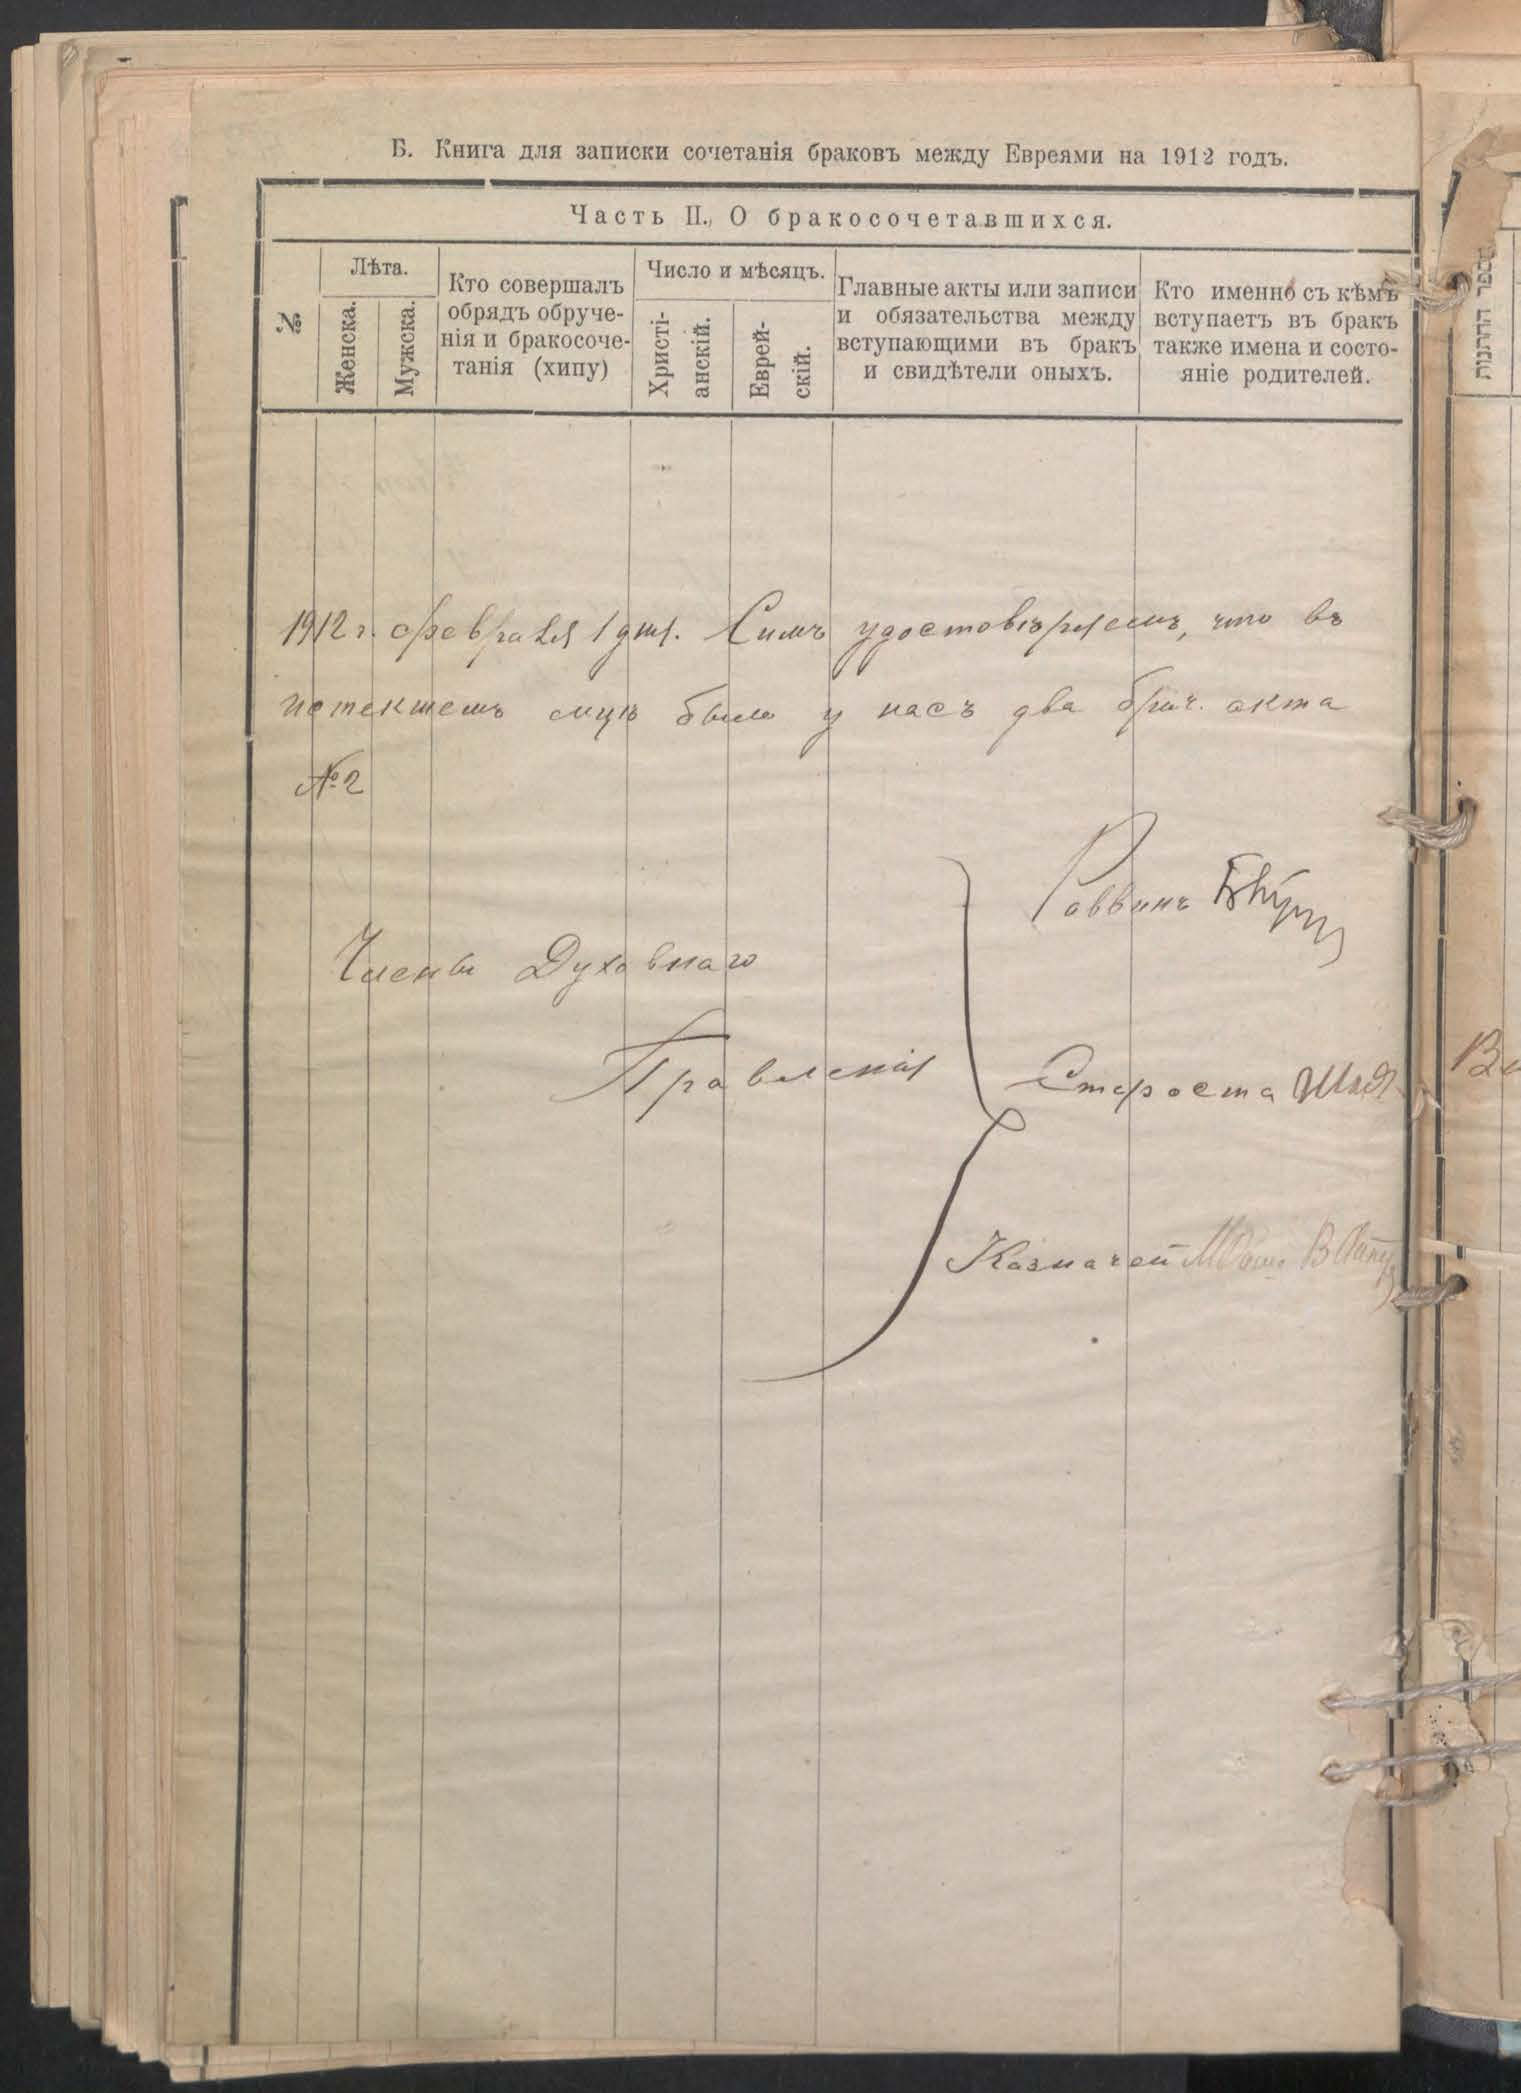 Б. Книга для записки сочетанія браковъ между Евреями на 1912 годъ.
Часть II., О бракосочетавшихся.
№
Лѣта.
Женска.
Мужска.
Кто совершалъ
обрядъ обруче-
нія и бракосоче-
танія (хипу)
Число и мѣсяцъ.
Христі-
анскій.
Еврей-
скій.
Главные акты или записи
и обязательства между
вступающими въ бракъ
и свидѣтели оныхъ.
Кто именно съ кѣмъ
вступаетъ въ бракъ
также имена и состо-
яніе родителей.
1912 г. февраля 1 дня. Симъ удостовѣряемъ, что въ
истекшемъ мцѣ было у насъ два брач. акта
№ 2
Раввинъ
Члены Духовнаго
Правленія
Староста
Казначей
ספר החתנות